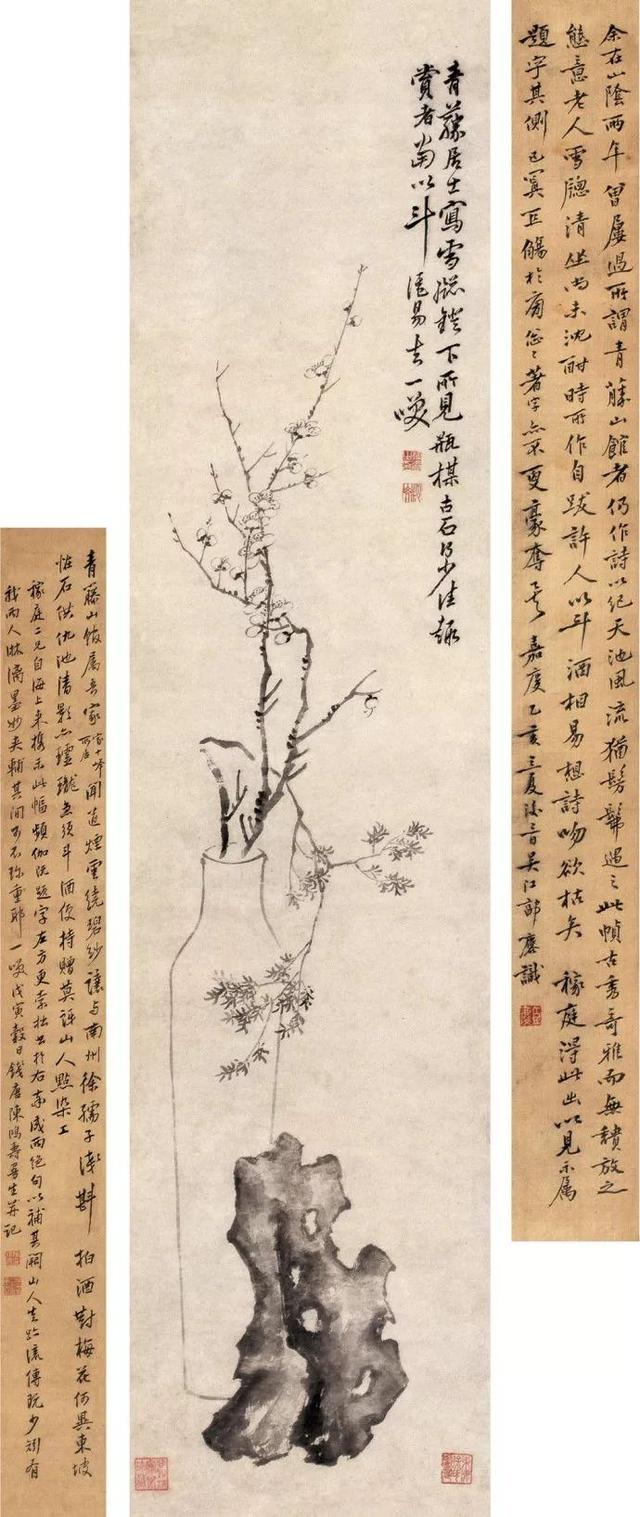 余在山陰兩年曾屢過所謂青藤山館者仍作詩以紀天池風流猶髣髴遇之此幀古秀奇雅而無穨放之
態意老人雪牕清坐尚未沈酣時所作自跋許人以斗酒相易想詩吻欲枯矣 稼庭得此出以見示屬
題字其側 嘉慶乙亥三夏 吳江郭麐識
青藤居士寫雪牕鐙下所見瓶楳古石得少佳趣
賞者當以斗酒易去一噱
青藤山館屬吾家 聞道煙雲繞碧紗讓與南州徐孺子 拍酒對梅花何異東坡
怪石供仇池清影亦瓏瓏無須斗酒便持贈莫訝山人點染工
稼庭二兄自海上來攜示此幅頻伽先題字左方更索拙書於右率成兩絕句以補其闕山人真跡流傳既少斵有
我兩人淋漓墨妙夾輔其間可不珍重耶一噱戊寅穀日錢唐陳鴻壽曼生并記